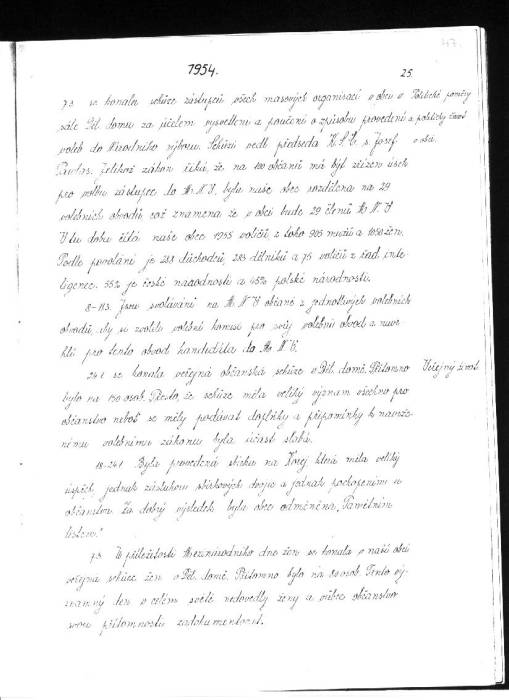 47.
1954.
25.
7.3. se konala schůze zástupců všech masových organisací v obci v
sále Děl. domu za účelem vysvětlení a poučení o způsobu provedení
voleb do Národního výboru. Schůzi vedl předseda K.S.Č. s. Josef
Pavlas. Jelikož zákon říká, že na 100 občanů má být zřízen úsek
pro volbu zástupce do M.N.V, byla naše obec rozdělena na 29
volebních obvodů což znamená že v obci bude 29 členů M.N.V
V tu dobu čítá naše obec 1955 voličů z toho 905 mužů a 1050 žen.
Podle povolání je 288 důchodců, 285 dělníků a 75 voličů z řad inte-
ligence. 55% je české národnosti a 45% polské národnosti.
8-11.3. Jsou svoláváni na M.N.V občané z jednotlivých volebních
obvodů, aby si zvolili volební komisi pro svůj volební obvod a navr-
hli pro tento obvod kandidáta do M.N.V.
24.1 se konala veřejná občanská schůze v Děl. domě. Přítomno
bylo na 150 osob. Přesto, že schůze měla veliký význam všechno pro
občanstvo neboť se měly podávat doplňky a připomínky k navrže-
nému volebnímu zákonu byla účast slabá.
18-24.1 Byla provedená sbírka na Korej která měla veliký
úspěch, jednak zásluhou sběrkových dvojic a jednak pochopením u
občanstva. Za dobrý výsledek byla obec odměněna „Pamětním
listem."
7.3. U příležitosti Mezinárodního dne žen se konala v naší obci
veřejná schůze žen v Děl. domě. Přítomno bylo na 80 osob. Tento vý-
znamný den v celém světě nedovedly ženy a vůbec občanstvo
svou přítomností zadokumentovat.
Politické poměry
a politický život
v obci.
Veřejný život